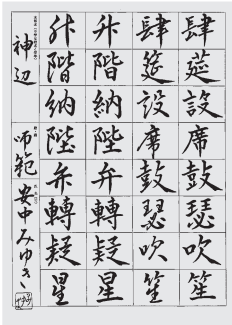 肆莚設席鼓瑟吹笙
肆筵設席鼓瑟吹笙
升階納陛弁轉疑星
升階納陛弁轉疑星
神辺 師範 安中みゆき